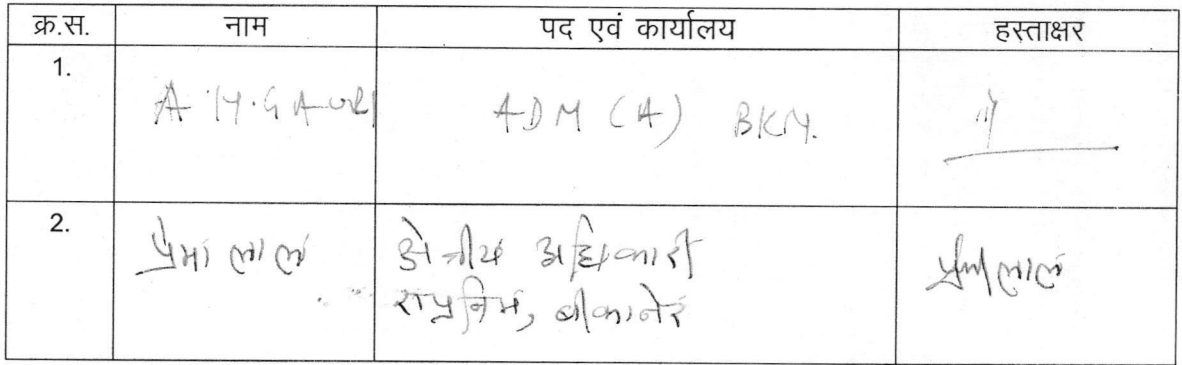 क्र.स. नाम पद एवं कार्यालय हस्ताक्षर
1. A.H.GAURI ADM (A) BKN.
2. प्रेमा लाल क्षेत्रीय अधिकारी प्रेमालाल
राप्रनिमं, बीकानेर